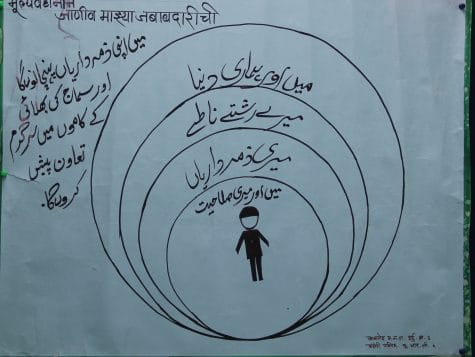 जाणीव माझ्या जबाबदारीची
میں اپنی ذمہ داریاں پہچانوں گا
اور سماج کی بھلائی
کے کاموں میں سرگرم
تعاون پیش
کروں گا۔
میں اور ہماری دنیا
میرے رشتے ناطے
میری ذمہ داریاں
میں اور میری صلاحیت